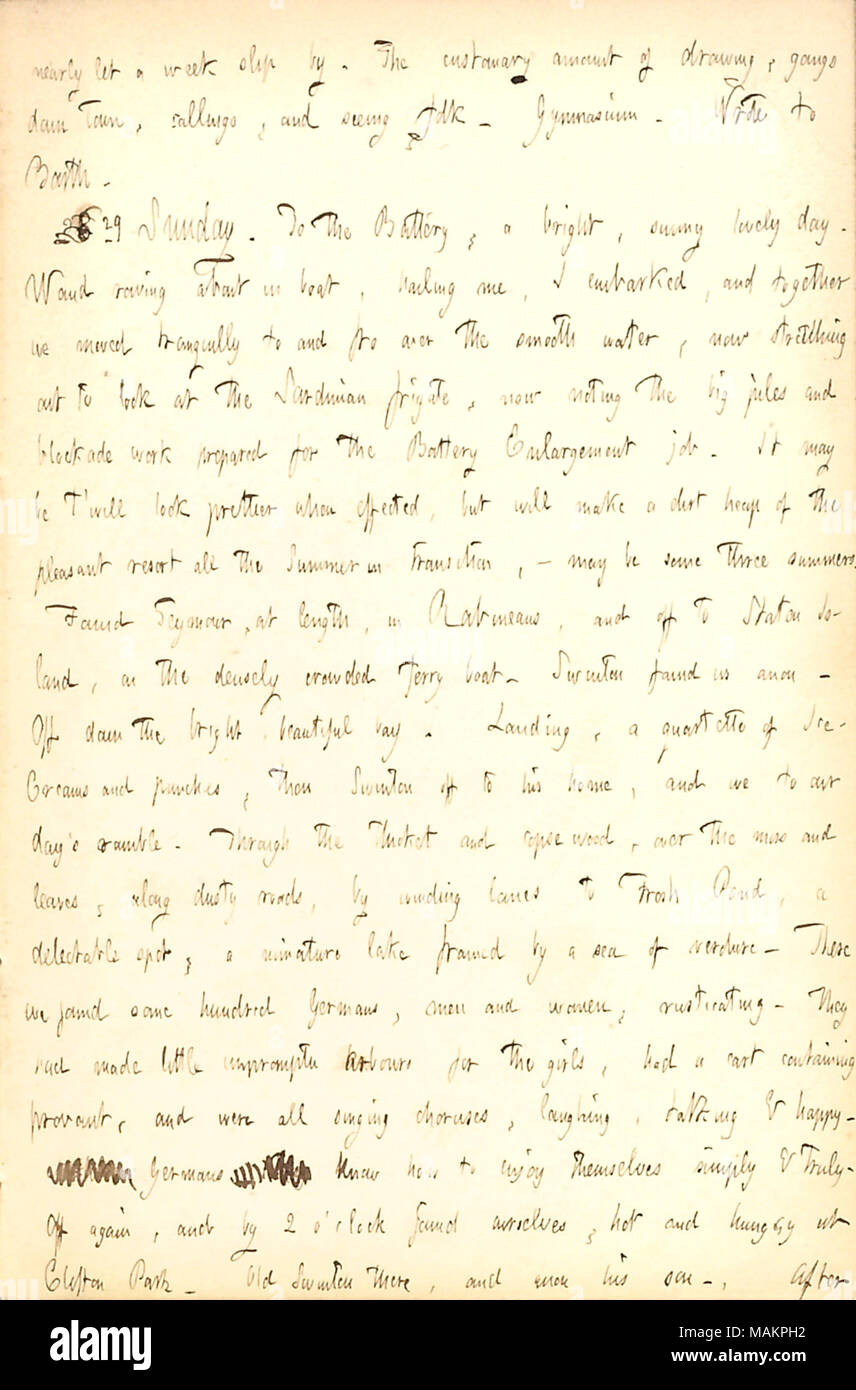 nearly let a week slip by. The customary amount of drawing, goings
down town, callings, and seeing folk. Gymnasium. Wrote to
Barth.
29 Sunday. To the Battery, a bright, sunny lovely day.
Waud rowing about in boat, hailing me, I embarked, and together
we moved tranquilly to and fro over the smooth water, now stretching
out to look at the Sardinian frigate, now noting the big piles and
blockade work prepared for the Battery Enlargement job. It may
be t'will look prettier when effected, but will make a dirt heap of the
pleasant resort all the Summer in transition, – may be some three summers.
Found Seymour, at length, in Rabineaus, and off to Staton Is-
land, on the densely crowded ferry boat. Swinton found us anon –
Off down the bright beautiful bay. Landing, a quartette of Ice-
Creams and punches, then Swinton off to his home, and we to our
day's ramble. Through the thicket and copse wood, over the moss and
leaves, along dusty roads, by winding lanes to Fresh Pond, a
delectable spot, a minature lake framed by a sea of verdure – There
we found some hundred Germans, men and women, rusticating – They
had made little impromptu arbours for the girls, had a cart containing
provant, and were all singing choruses, laughing, talking & happy –
Germans know how to enjoy themselves simply & truly.
Off again, and by 2 o'clock found ourselves, hot and hungry at
Clifton Park. Old Swinton there, and anon his son –. After
alamy
Image ID: MAKPH2
www.alamy.com